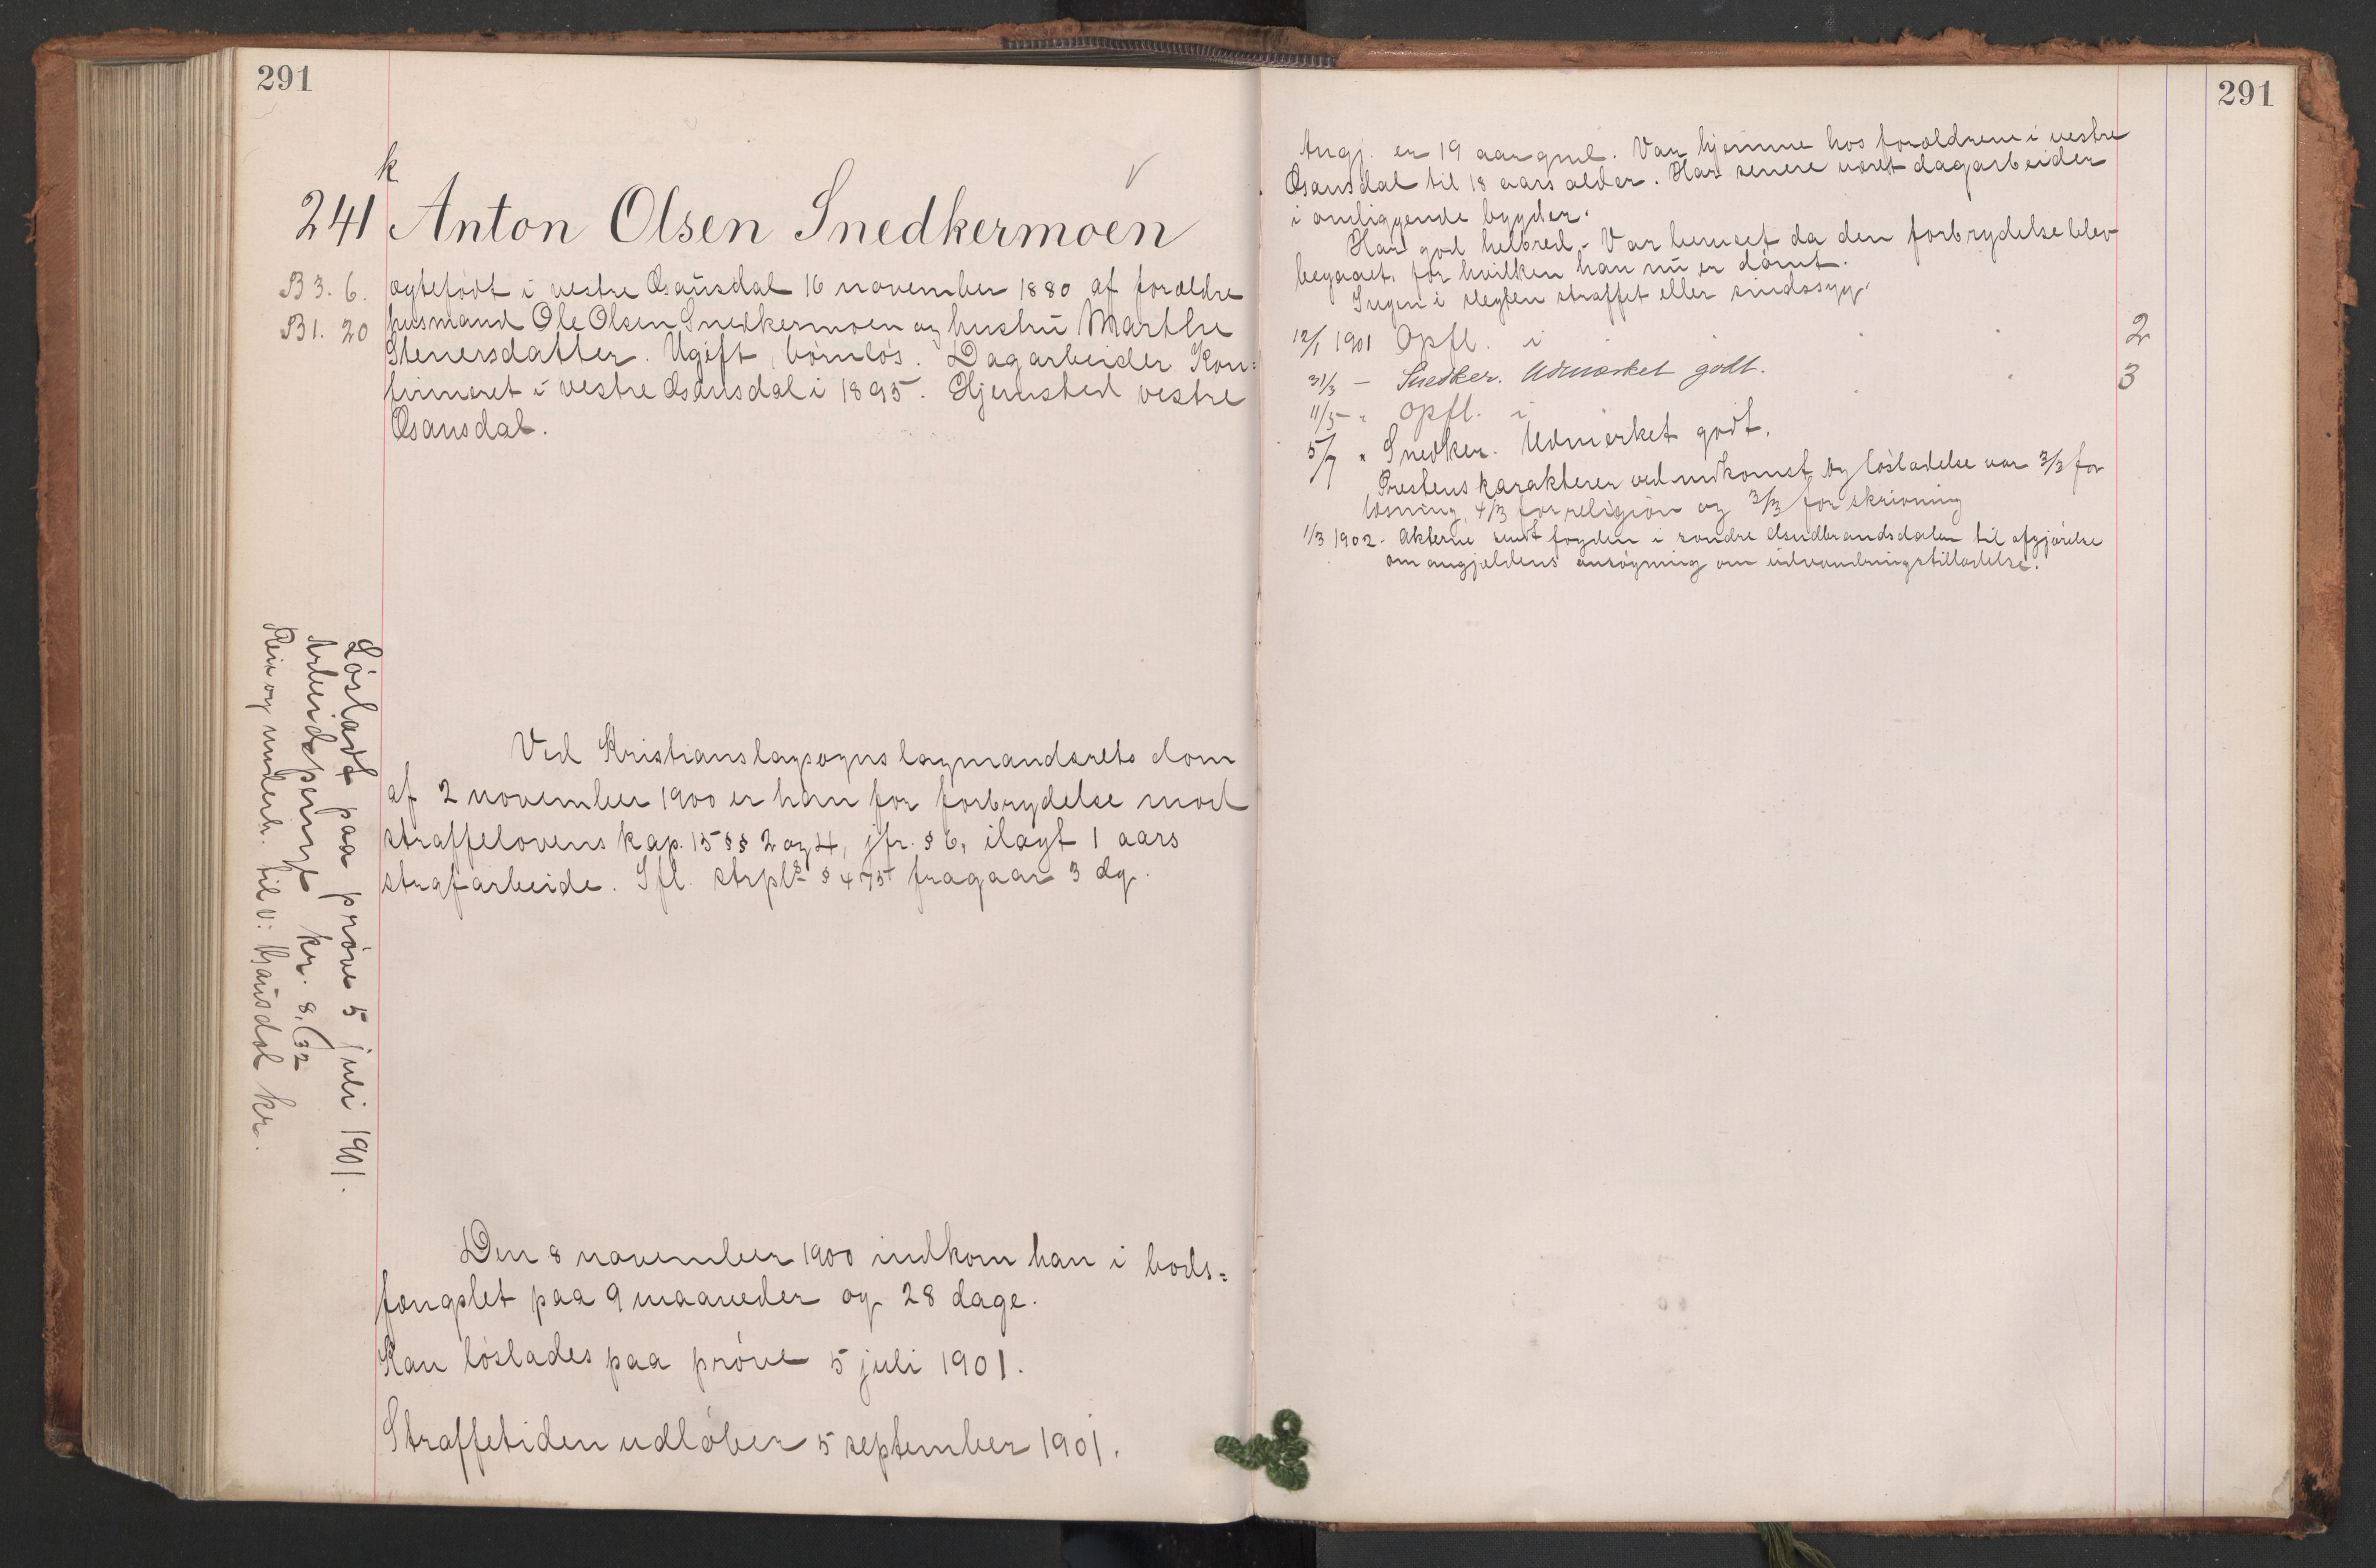 291
k
241 Anton Olsen Snedkermoen
B 3. 6. ægtefødt i vestre Gausdal 16 november 1880 af forældre
B 1. 20 husmand Ole Olsen Snedkermoen og hustru Marthe
Stenersdatter. Ugift, børnløs. Dagarbeider Kon=
firmeret i vestre Gausdal i 1895. Hjemsted vestre
Gausdal.
Ved Kristians lagsogns lagmandsrets dom
af 2 november 1900 er han for forbrydelse mod
straffelovens kap. 15 §§ 2 og 4, jfr. § 6, ilagt 1 aars
strafarbeide. Ifl. strpl. § 475 fragaar 3 dg.
Løsladt paa prøve 5 juli 1901.
Arbeidspengt kr. 8,32
Rein og underh. til v: Gausdal kr.
Den 8 november 1900 indkom han i bods=
fængslet paa 9 maaneder og 28 dage.
Kan løslades paa prøve 5 juli 1901.
Straffetiden udløber 5 september 1901.
291
Angj. er 19 aar gml. Var hjemme hos forældrene i vestre
Gausdal til 18 aars alder. Har senere været dagarbeider
i omliggende bygder.
Har god helbred. Var beruset da den forbrydelse blev
begaaet, for hvilken han nu er dømt.
Ingen i slegten straffet eller sindssyg.
12/1 1901 Opfl. i 2
31/3 — Snedker. Udmærket godt. 3
11/5 " Opfl. i
5/7 " Snedker. Udmerket godt.
Prestens karakterer ved indkomst og løsladelse var 3/3 for
læsning, 4/3 for religion og 3/3 for skrivning
1/3 1902. Akterne sendt fogden i søndre Gudbrandsdalen til afgjørelse
om angjældens ansøgning om udvandringstilladelse.